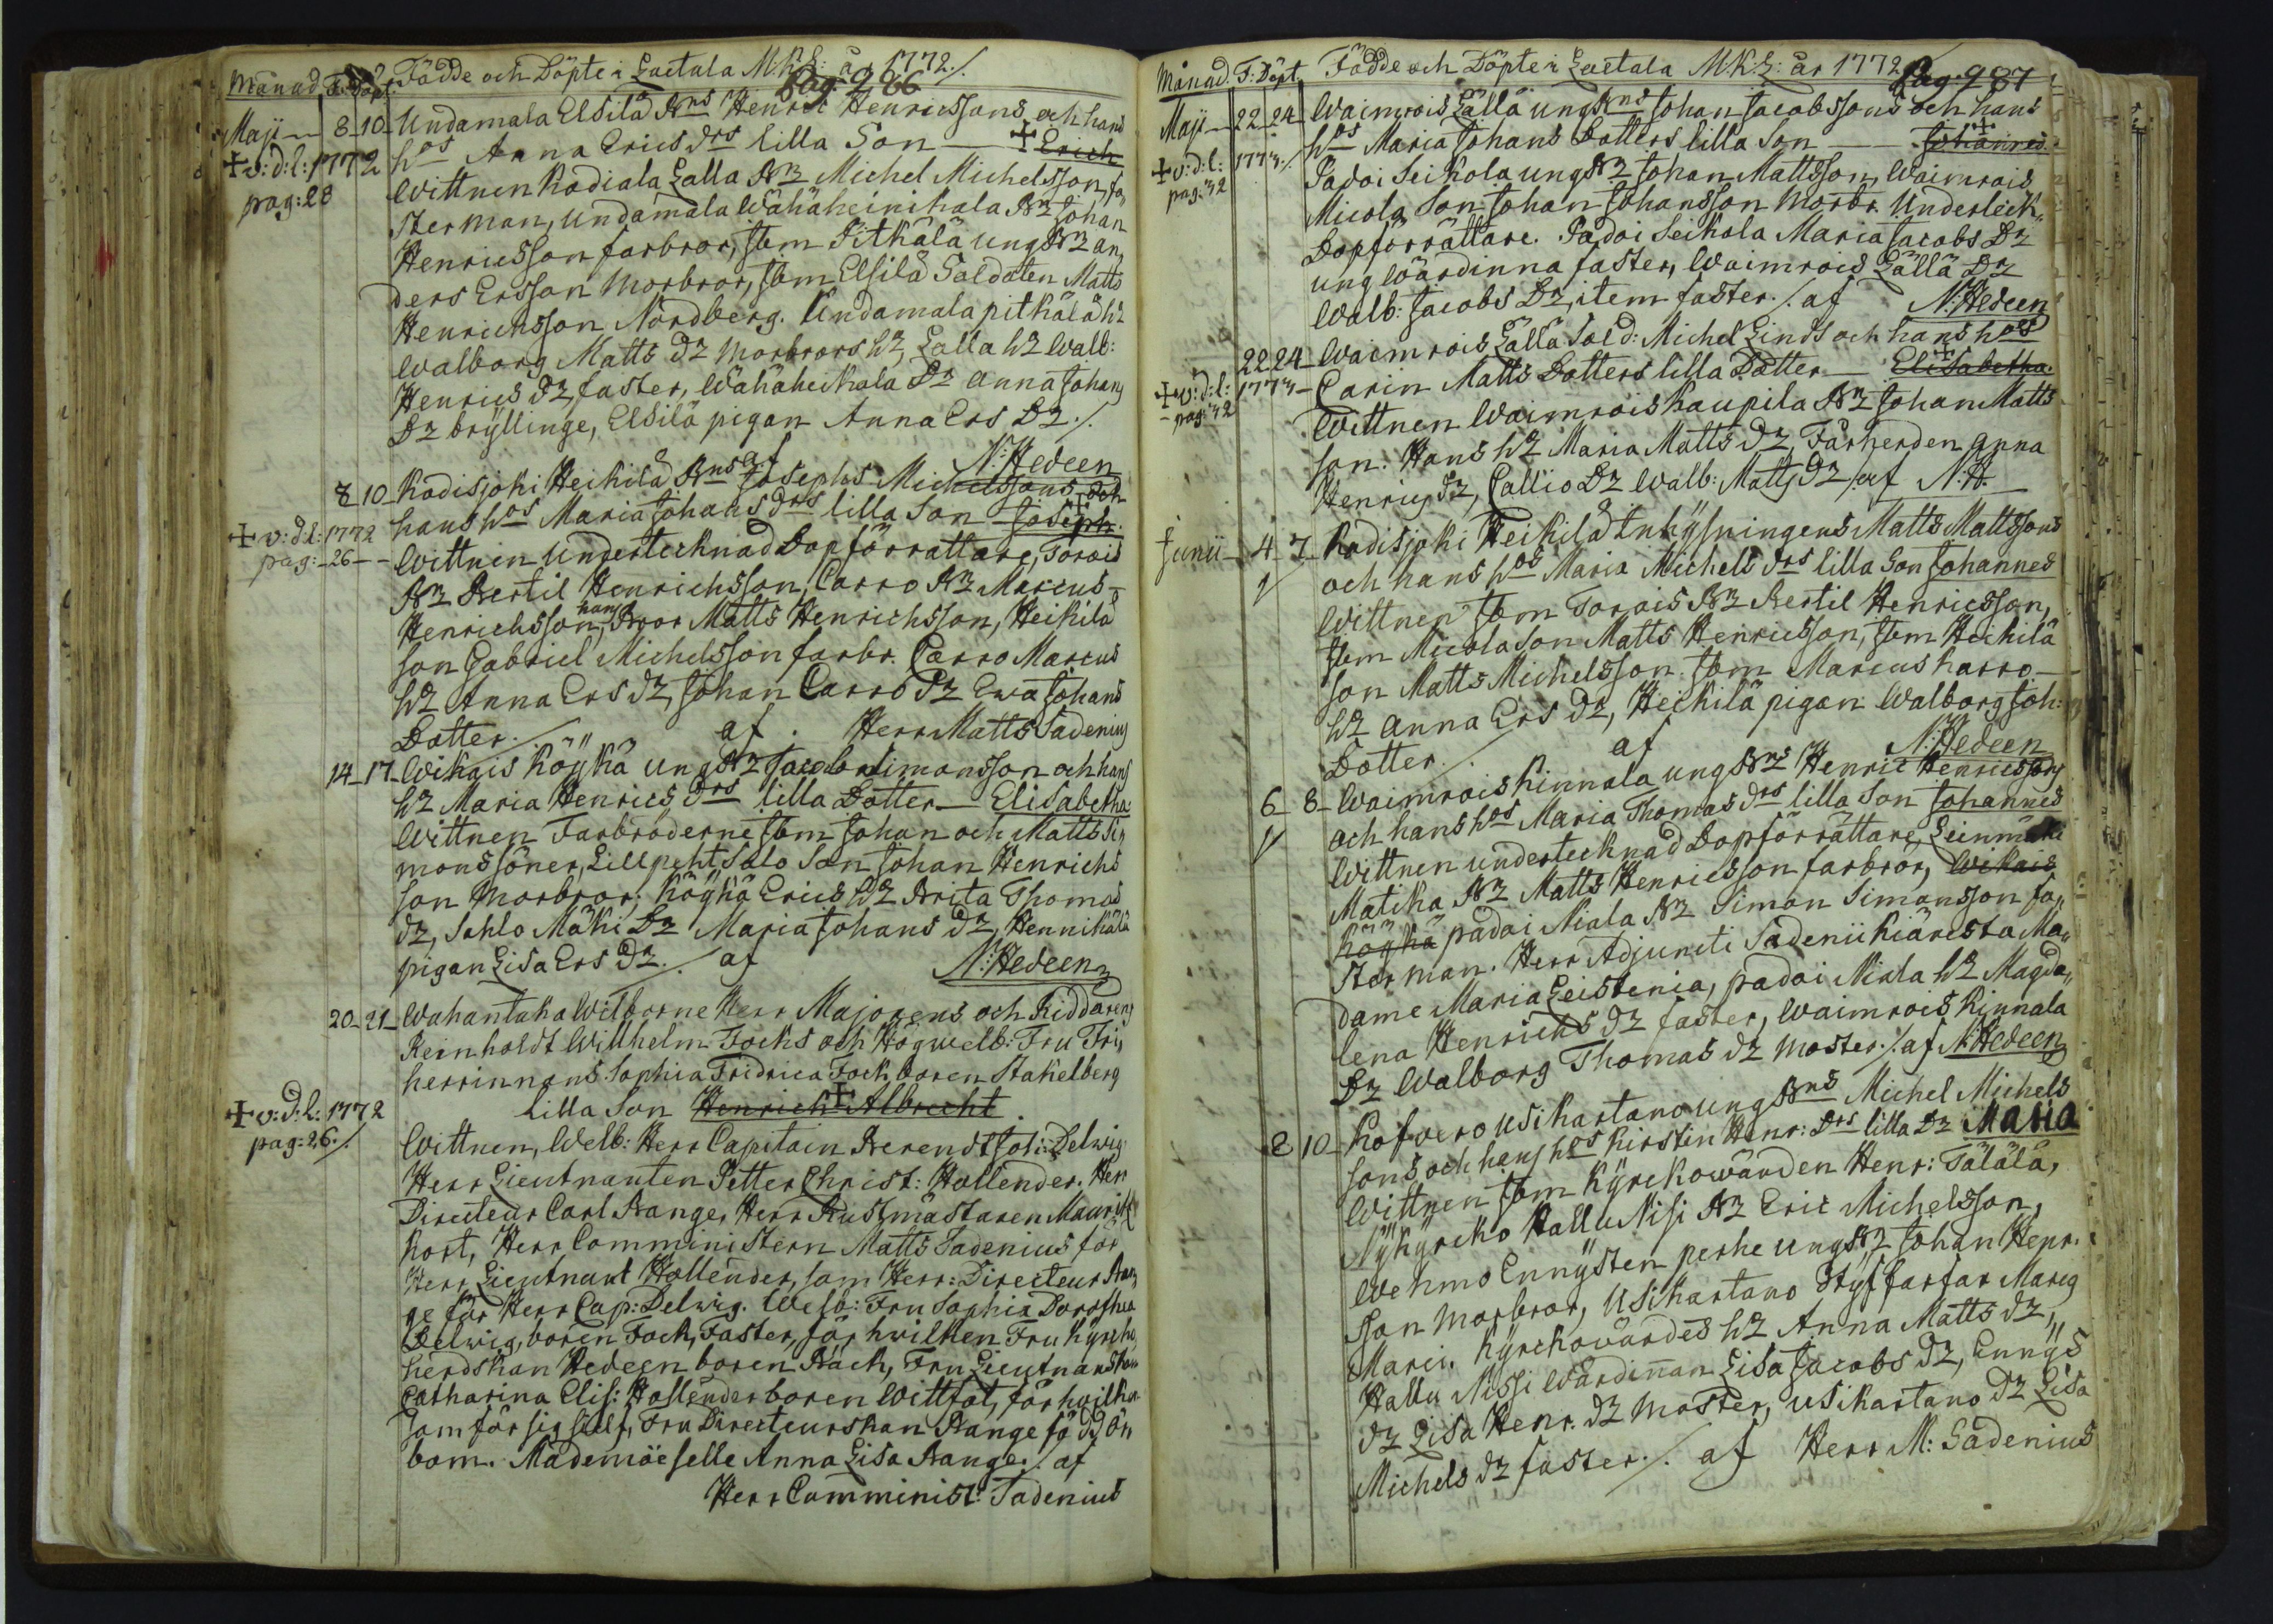 Månad F: Döpt. Födde och Döpte i Laetala M:K:L: år 1772./.
Pag. 986
Maji 8 10 Undamala Elsilä Bns Henric Henricssons och hans
✝ v: d: l: 1772 hos Anna Erics drs lilla Son — ✝ Erich
pag: 28 Wittnen Kodiala Lalla Bz Michel Michelsson, fa
sterman, Undamala Wähäheinikala Bz Johan
Henricsson farbror, ibm Pitkälä ung Bz An,,
ders Ersson Morbror, ibm Elsilä Soldaten Matts
Henrichsson Nordberg. Undamala pitkälä hz
Walborg Matts dz Morbrors hz, Lalla hz Walb:
Henrics dz faster, Wähäheikala Dz Anna Johans
Dz bryllinge, Elsilä pigan Anna Ers Dz./.
af N: Hedeen
8 10 Kodisjoki Heikilä Bns Josephs Michelssons och
✝ v: d: l: 1772 hans hos Maria Johans drs lilla Son ✝ Joseph.
pag: 26 Wittnen Undertecknad Dopförrättare, Torois
Bz Bertil Henrichsson, Carro Bz Marcus
Henrichsson, hans Bror Matts Henrichsson, Heikilä
son Gabriel Michelsson farbr. Carro Marcus
hz Anna Ers dz, Johan Carro dz Ewa Johans
Dotter./. af Herr Matts Sadenius
14 17 Wikais Köykä ung Bz Jacob Simonsson och hans
hz Maria Henrics drs lilla Dotter — Elisabetha
Wittnen Farbröderne ibm Johan och Matts Si,,
mons söner, Lillpeht Salo Son Johan Henrichs
son Morbror, Köykä Erics hz Brita Thomas
dz, Sahlo Mäki Dz Maria Johans dz, Hennikälä
pigan Lisa Ers dz./. af N: Hedeen
20 21 Wahantaka Wälborne Herr Majorens och Riddarens
Reinholdt Willhelm Focks och Högwelb: Fru Fri,,
herrinnans Sophia Fridrica Fock boren Stakelberg
✝ v: d: l: 1772 lilla Son Henrich ✝ Albrecht
pag: 26./. Wittnen, Welb: Herr Capitain Berendt Joh: Delwig
Herr Lieutnanten Petter Christ: Hollender. Herr
Directeur Carl Bange, Herr Rustmästaren Maurits
Kort, Herr Comministern Matts Sadenius för
Herr Lieutnant Hollender, som Herr: Directeur Ban,,
ge för Herr Cap: Delwig. Welb: Fru Sophia Dorothea
Delwig, boren Fock, Faster, för hwilken Fru Kyrcho
herdskan Hedeen boren Bäck, Fru Lieutnantskan
Catharina Elis: Hollender boren Wittfot, för hwilken
som för sig sielf, Fru Directeurskan Bange född Ön
bom. Mademoiselle Anna Lisa Bange./. af
Herr Comminist: Sadenius
Månad. F: Döpt Födde och Döpte i Laetala M:K:L: år 1772
Pag. 987
Maji 22 24 Waimrois Lällä ung Bns Johan Jacobssons och hans
✝ v: d: l: 1773./. hos Maria Johans Dotters lilla Son — ✝ Johannes.
pag: 32 Padoi Seikola ung Bz Johan Mattsson, Waimrois
Micola Son Johan Johansson Morbr. Underteck,,
Dopförrättare. Padoi Seikola Maria Jacobs Dz
ung Wärdinna faster, Waimrois Lällä Dz
Walb: Jacobs Dz, item faster./. af N: Hedeen
22 24 Waimrois Lällä Sold: Michel Linds och hans hos
✝ v: d: l: 1773 Carin Matts Dotters lilla Dotter — ✝ Elisabetha.
pag: 32 Wittnen Waimrois Kaupila Bz Johan Matts
son. Hans hz Maria Matts dz, Fårherden Anna
Henrics dz, Callio Dz Walb: Matts dz /. af N: H.
Junii 4 7 Kodisjoki Heikilä Inhysningens Matts Mattssons
och hans hos Maria Michels drs lilla Son Johannes
Wittnen ibm Torois Bz Bertil Henricsson,
ibm Micola Son Matts Henricsson, ibm Heikilä
son Matts Michelsson. ibm Marcus Karro
hz Anna Ers dz, Heikilä pigan Walborg Joh:
Dotter./. af N: Hedeen
6 8 Waimrois Kinnala ung Bns Henric Henricssons
och hans hos Maria Thomas drs lilla Son Johannes
Wittnen undertecknad Dopförrättare, Leinmäki
Matika Bz Matts Henricsson farbror, Wikais
Köykä padoi Niala Bz Simon Simonsson fa,,
sterman. Herr Adjuncti Sadenii Kiäresta Ma,,
dame Maria Leistenia, padoi Niala hz Magda,,
lena Henrichs dz faster, Waimrois Kinnala
Dz Walborg Thomas dz Moster./. af N: Hedeen
8 10 Kofvero Usikartano ung Bns Michel Michels
sons och hans hos Kirstin Henr: Drs lilla Dz Maria
Wittnen ibm Kyrckowärden Henr: Tälälä,
Nykyrcko Hallu Nisi Bz Eric Michelsson,
Wehmo Ennysten perhe ung Bz Johan Henr.
sson Morbror, Usikartano Styf farfar Marcus
Marci. Kyrckowärdes hz Anna Matts dz,
Hallu Nissi Wärdinnan Lisa Jacobs dz, Ennys
dz Lisa Henr. dz Moster, Usikartano dz Lisa
Michels dz faster./. af Herr M: Sadenius